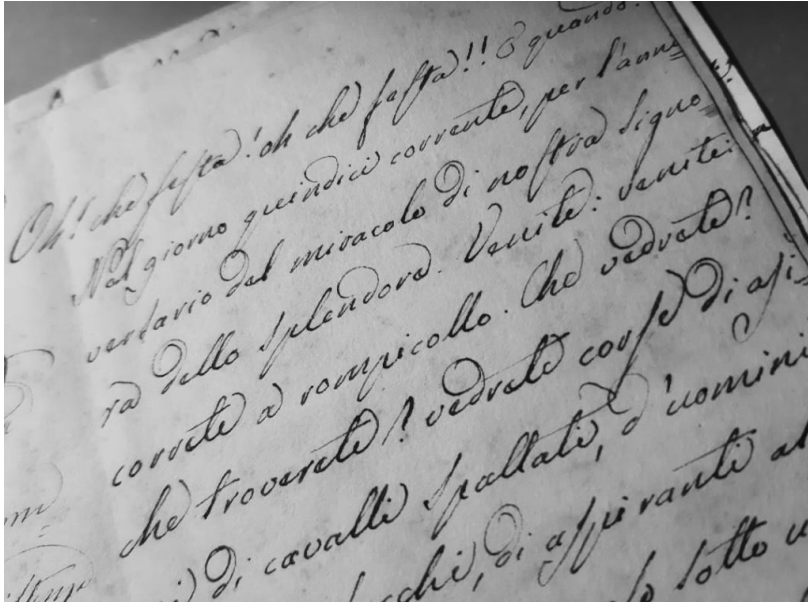 Oh! che festa! oh che festa!! E quando?
Nel giorno quindici corrente, per l'anni=
versario del miracolo di nostra Signo=
ra dello Splendore. Venite: venite:
correte a rompicollo. Che vedrete?
che troverete? vedrete corse di asi=
di cavalli spallati, d'uomini
di aspiranti al
sotto